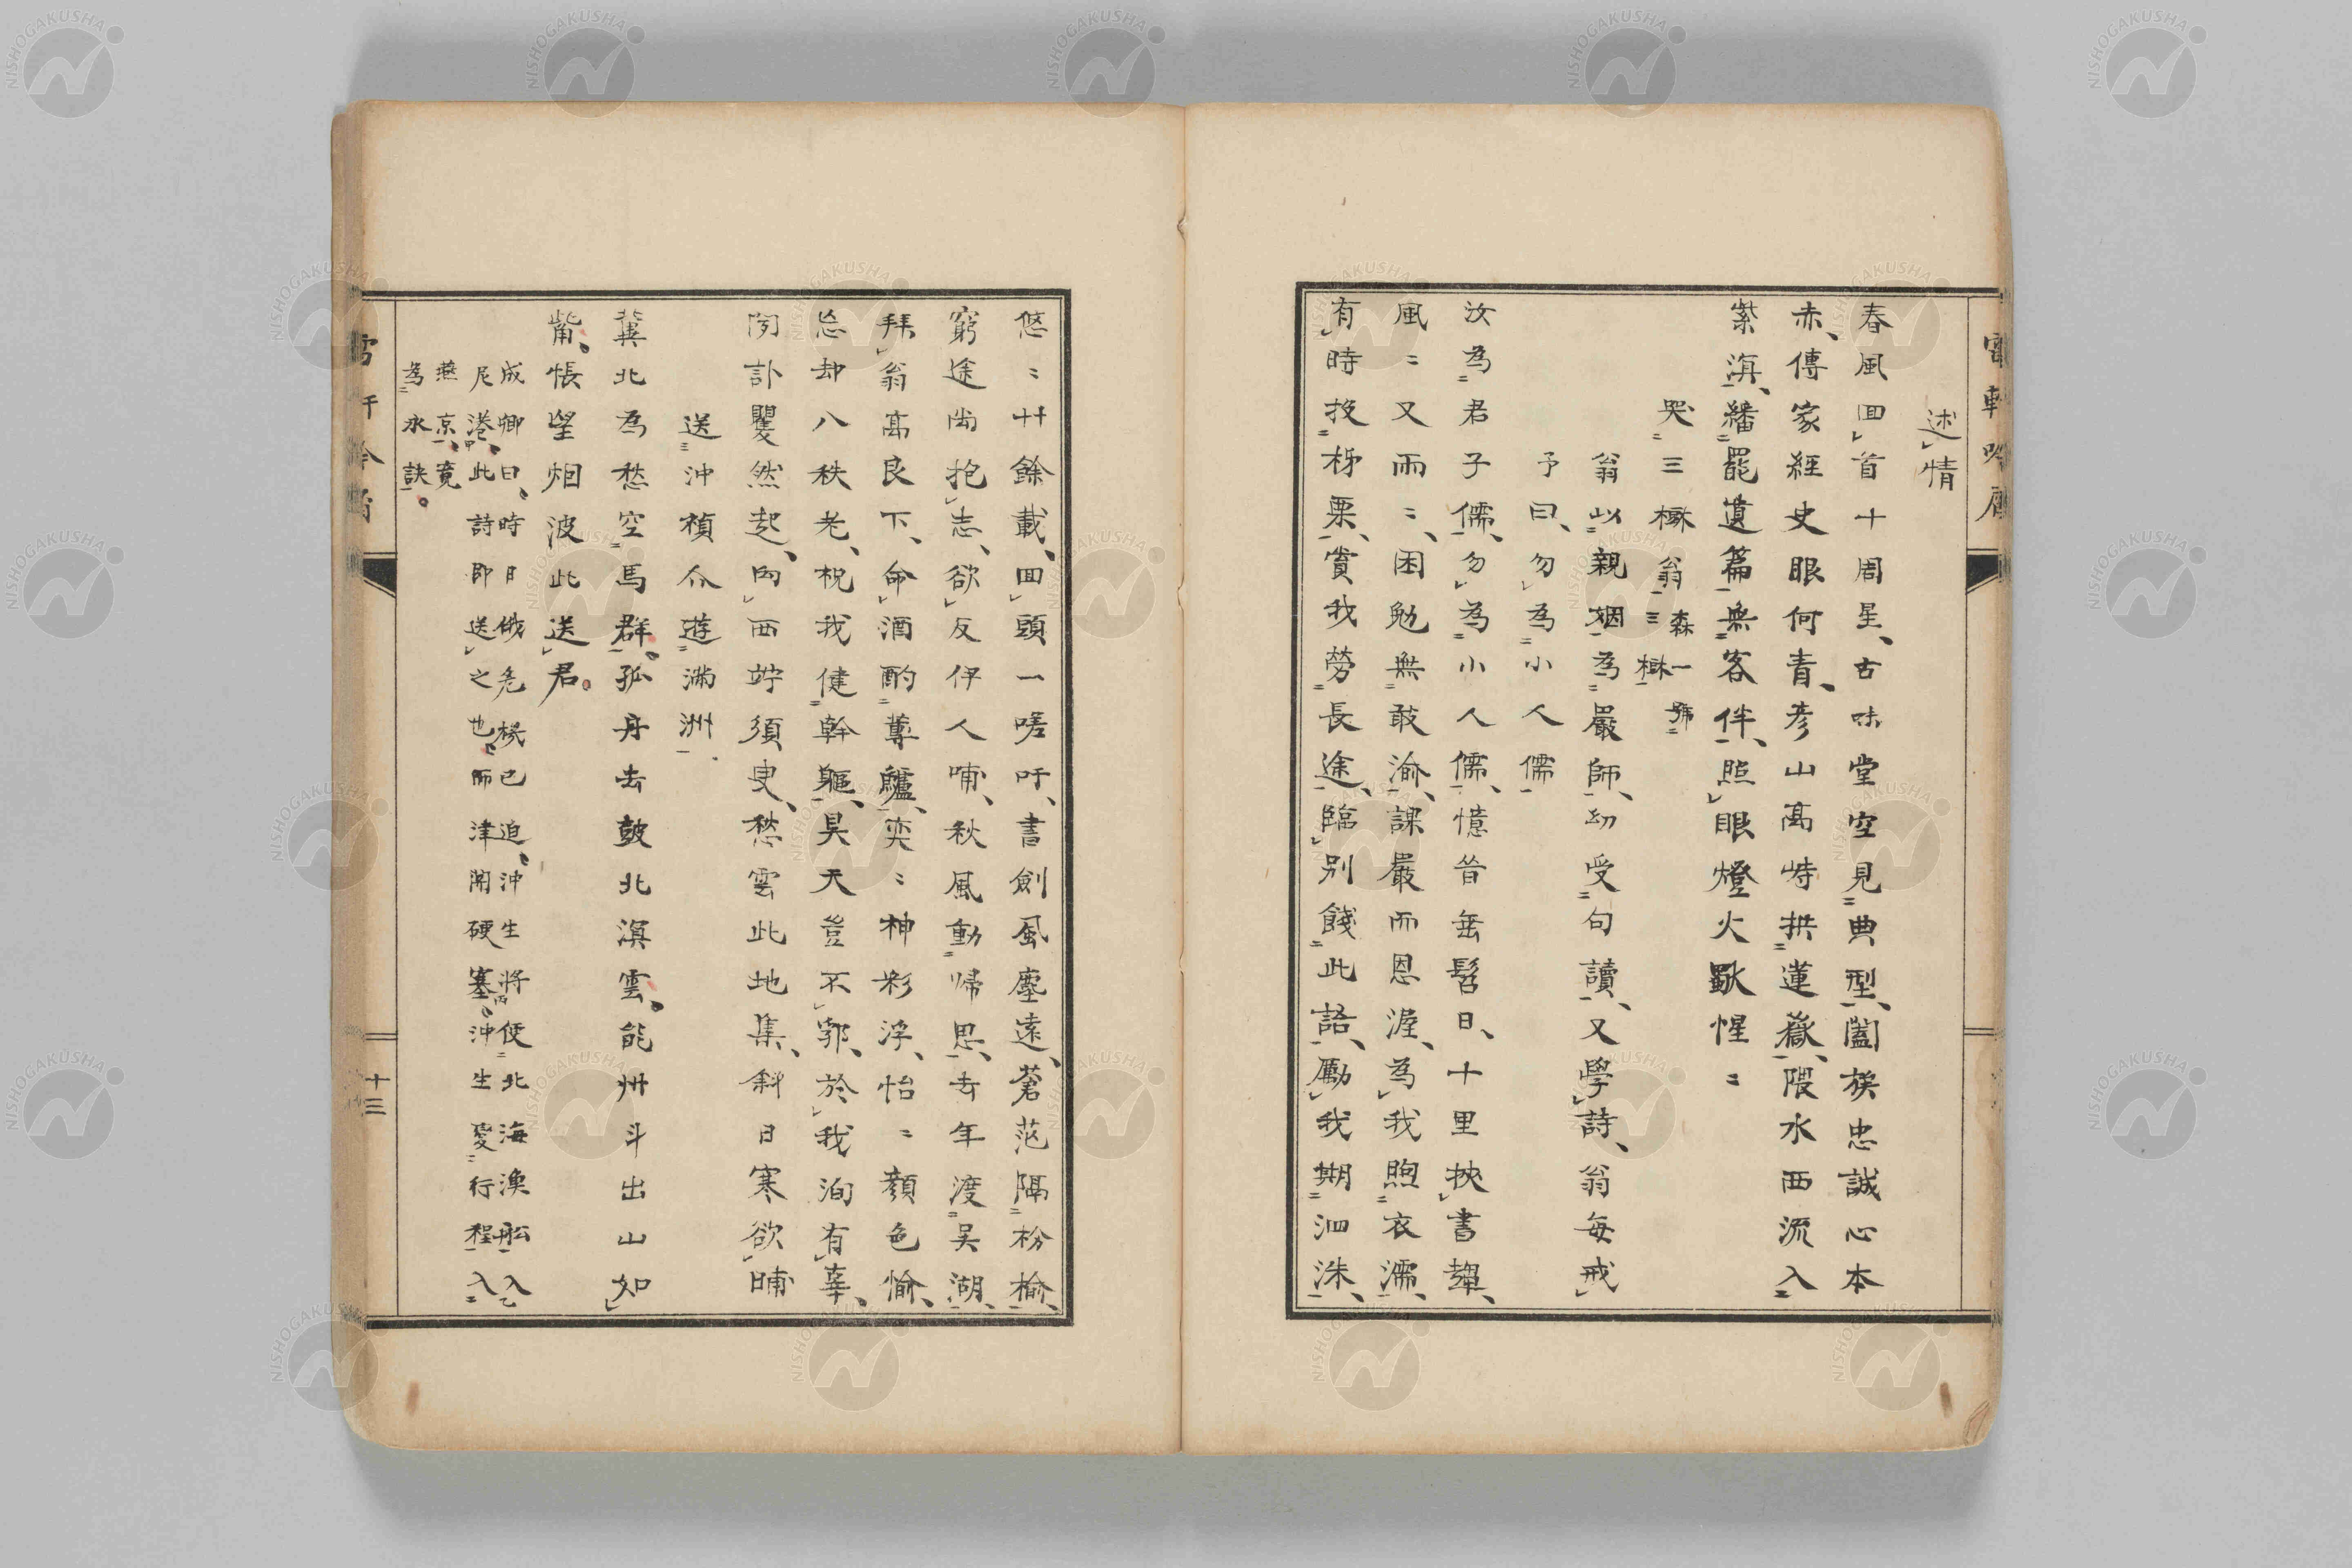 述情
春風回首十周星、古味堂空見典型、闔族忠誠心本
赤、傳家經史眼何青、彦山高峙拱蓮嶽、隈水西流入
紫溟、繙罷遺篇無客伴、照眼燈火歇惺〻
哭三楙翁 森一號三楙
翁以親姻為嚴師、幼受句讀、又學詩、翁每戒
予曰、勿為小人儒
汝為君子儒、勿為小人儒、憶昔垂髫日、十里挾書趨、
風〻又雨〻、困勉無敢渝、課嚴而恩渥、為我煦衣濡、
有時投栘栗、賞我勞長途、臨別餞此語、勵我期泗洙、
悠〻廿餘載、回頭一嗟吁、書劍風塵遠、蒼茫隔枌楡、
窮途尚抱志、欲反伊人哺、秋風動歸思、去年渡吳湖、
拜翁高良下、命酒酌蓴鱸、奕〻神彩浮、怡〻顏色愉、
忘却八秩老、祝我健幹軀、昊天豈不弔、於我洵有辜、
聞訃矍然起、向西竚須臾、愁雲此地集、斜日寒欲晡
送沖禎介遊滿洲
冀北為愁空馬群、孤舟去皷北溟雲、能州斗出山如
觜、悵望烟波此送君。
成卿曰、時日俄危機已迫、沖生將便北海漁船入
尼港、此詩即送之也、而津關硬塞、沖生变行程入
燕京、竟
為永訣。
十三